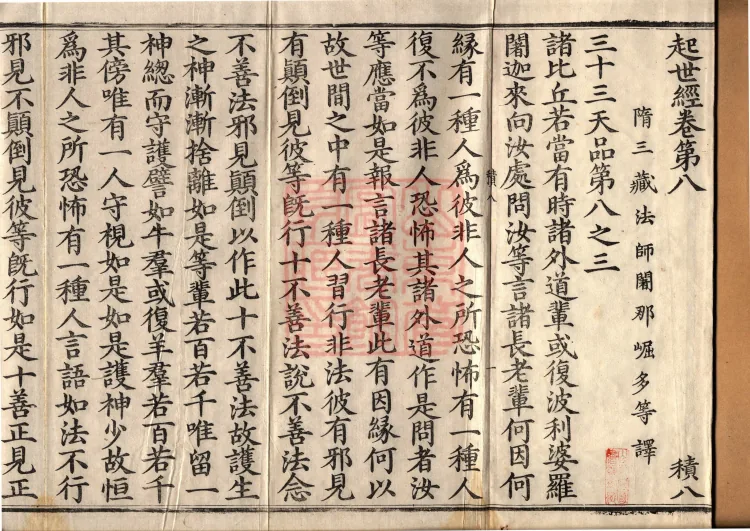 起世經卷第八 積八
隋三藏法師闍那崛多等譯
三十三天品第八之三
諸比丘若當有時諸外道輩或復波利婆羅
闍迦來向汝處問汝等言諸長老輩何因何
積八 一
緣有一種人為彼非人之所恐怖有一種人
復不為彼非人恐怖其諸外道作是問者汝
等應當如是報言諸長老輩此有因緣何以
故世間之中有一種人習行非法彼有邪見
有顛倒見彼等旣行十不善法說不善法念
不善法邪見顛倒以作此十不善法故護生
之神漸漸捨離如是等輩若百若千唯留一
神總而守護譬如牛羣或復羊羣若百若千
其傍唯有一人守視如是如是護神少故恒
為非人之所恐怖有一種人言語如法不行
邪見不顛倒見彼等旣行如是十善正見正